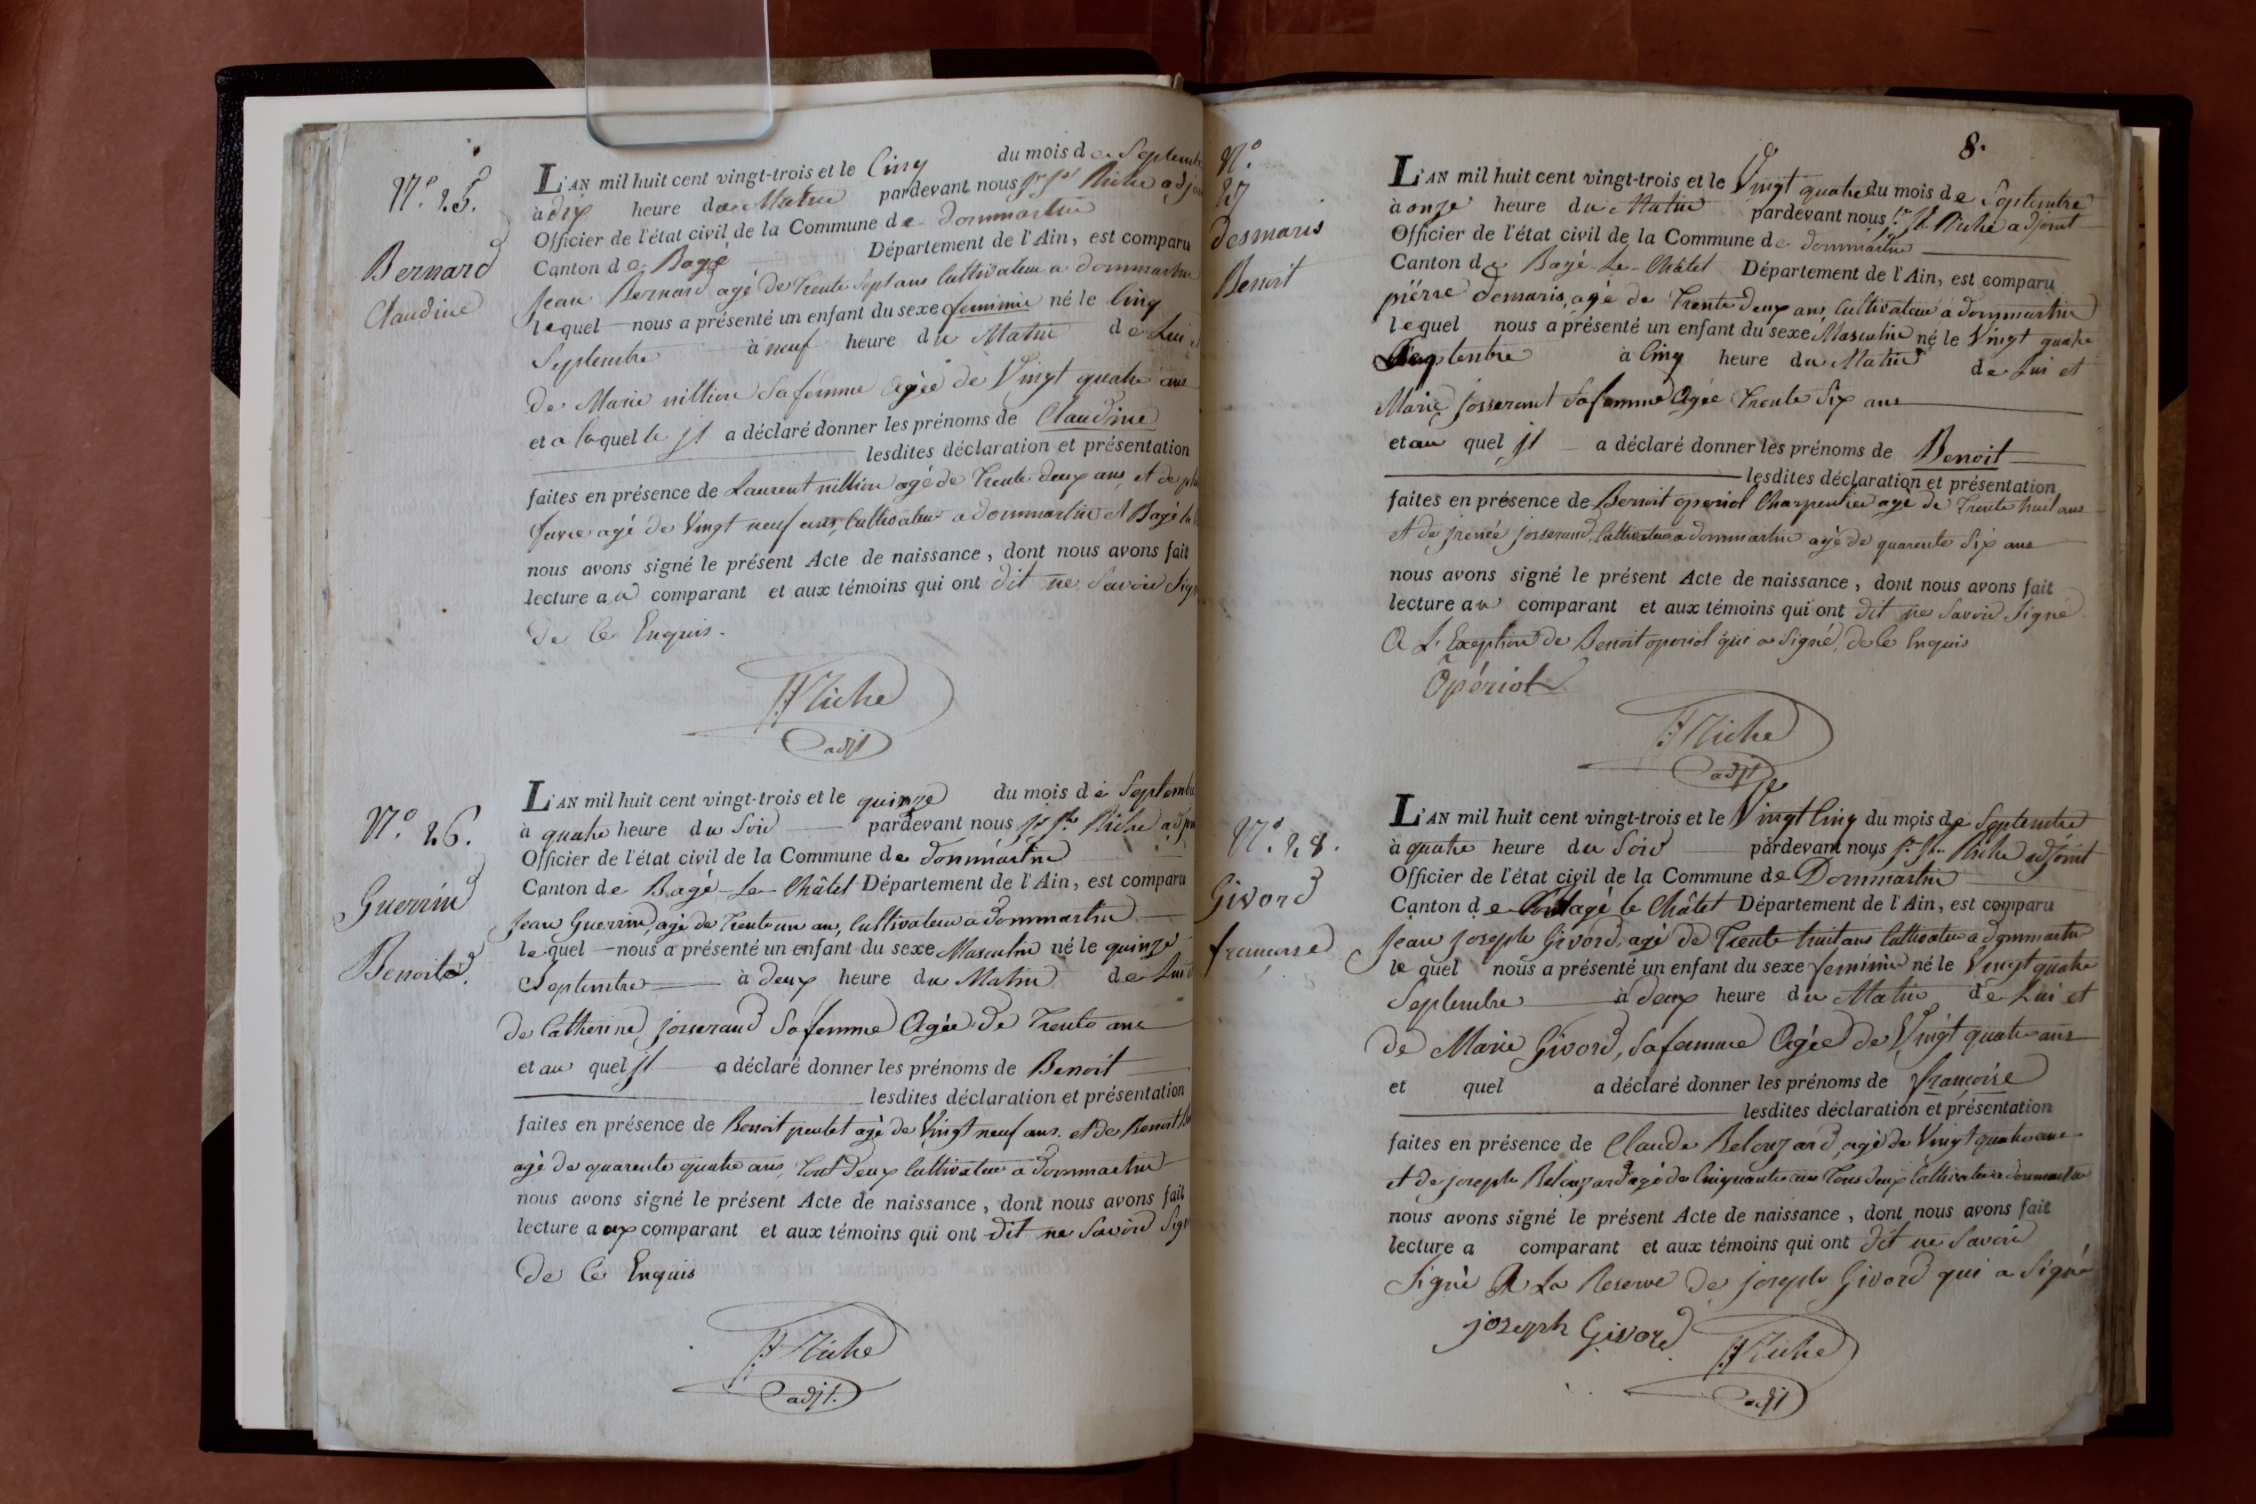 N.º 25.
Bernard
Claudine
L'AN mil huit cent vingt-trois et le Cinq du mois de Septemb
à dix heure du Matin pardevant nous Riche adjoi
Officier de l'état civil de la Commune de dommartin
Canton de Bagé Département de l'Ain, est comparu
Jean Bernard agé de trente Sept ans Cultivateur a dommartin
lequel nous a présenté un enfant du sexe feminin né le Cinq
Septembre à neuf heure du Matin de Lui
de Marie nillion Sa femme Agée de Vingt quatre ans
et a laquel le jl a déclaré donner les prénoms de Claudine
lesdites déclaration et présentation
faites en présence de Laurent nillion agé de trente deux ans et de
favre agé de Vingt neuf ans, Cultivateur a dommartin et Bagé la
nous avons signé le présent Acte de naissance, dont nous avons fait
lecture au comparant et aux témoins qui ont dit ne Savoir Sig
de Ce Enquis.
Riche
adjt
N.º 26.
Guerrin
Benoit
L'AN mil huit cent vingt-trois et le quinze du mois de Septemb
à quatre heure du Soir pardevant nous Riche adj
Officier de l'état civil de la Commune de dommartin
Canton de Bagé-Le-Châtel Département de l'Ain, est comparu
Jean Guerrin, agé de trente un an, Cultivateur a dommartin
lequel nous a présenté un enfant du sexe Masculin né le quinze
Septembre à deux heure du Matin de Lui
de Catherine josserand Sa femme Agée de trente ans
et au quel jl a déclaré donner les prénoms de Benoit
lesdites déclaration et présentation
faites en présence de Benoit peulet agé de Vingt neuf ans. et de Benoit
agé de quarente quatre ans, tout deux Cultivateur a dommartin
nous avons signé le présent Acte de naissance, dont nous avons fait
lecture a ux comparant et aux témoins qui ont dit ne Savoir Sign
de Ce Enquis
Riche
adjt.
8.
N.º
27
desmaris
Benoit
L'AN mil huit cent vingt-trois et le Vingt quatre du mois de Septembre
à onze heure du Matin pardevant nous Riche adjoint
Officier de l'état civil de la Commune de dommartin
Canton de Bagé-Le-Châtel Département de l'Ain, est comparu
pierre demaris, agé de trente deux ans, Cultivateur a dommartin
lequel nous a présenté un enfant du sexe Masculin né le Vingt quatre
Septembre à Cinq heure du Matin de Lui et
Marie josserand Sa femme Agée trente Six ans
et au quel jl a déclaré donner les prénoms de Benoit
lesdites déclaration et présentation
faites en présence de Benoit operiol Charpentier agé de trente huit ans
et de jrenée josserand, Cultivateur a dommartin agé de quarente Six ans
nous avons signé le présent Acte de naissance, dont nous avons fait
lecture au comparant et aux témoins qui ont dit ne Savoir Signé
A L'Exeption de Benoit operiol qui a Signé, de Ce Enquis
Opériol
Riche
adjt
N.º 28.
Givord
françoise
L'AN mil huit cent vingt-trois et le Vingt Cinq du mois de Septembre
à quatre heure du Soir pardevant nous Riche adjoint
Officier de l'état civil de la Commune de Dommartin
Canton de Bagé le Châtel Département de l'Ain, est comparu
Jean joseph Givord, agé de trente huit ans Cultivateur a dommartin
le quel nous a présenté un enfant du sexe feminin né le Vingt quatre
Septembre à deux heure du Matin de Lui et
de Marie Givord, Sa femme Agée de Vingt quatre ans
et quel a déclaré donner les prénoms de françoise
lesdites déclaration et présentation
faites en présence de Claude Belouzard, agé de Vingt quatre ans
et de joseph Belouzard agé de Cinquante ans tous deux Cultivateur a dommartin
nous avons signé le présent Acte de naissance, dont nous avons fait
lecture a comparant et aux témoins qui ont dit ne Savoir
Signé A La Reserve de joseph Givord qui a Signé
joseph Givord
Riche
adjt